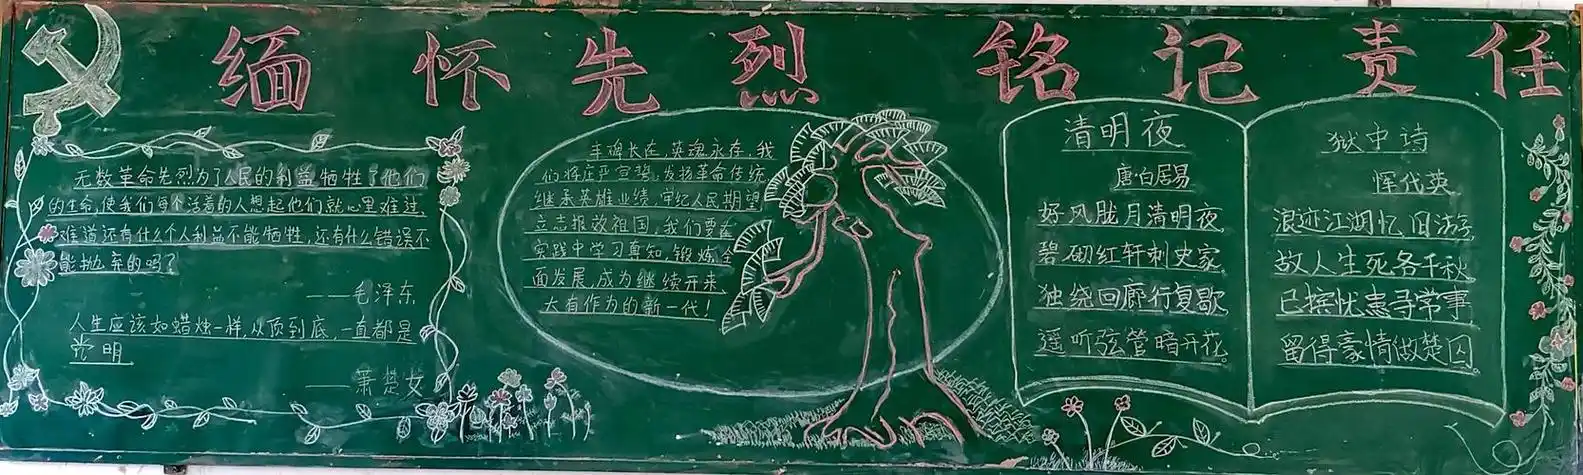 缅怀先烈 铭记责任
无数革命先烈为了人民的利益牺牲了他们
的生命,使我们每个活着的人想起他们就心里难过,
难道还有什么个人利益不能牺牲,还有什么错误不
能抛弃的吗?
——毛泽东
人生应该如蜡烛一样,从顶到底,一直都是
光明
——萧楚女
丰碑长在,英魂永存,我
们将庄严宣誓:发扬革命传统,
继承英雄业绩,牢纪人民期望
立志报效祖国,我们要在
实践中学习真知,锻炼全
面发展,成为继续开来、
大有作为的新一代!
清明夜
唐·白居易
好风胧月清明夜
碧砌红轩刺史家
独绕回廊行复歇
遥听弦管暗开花
狱中诗
恽代英
浪迹江湖忆旧游
故人生死各千秋
已摈忧患寻常事
留得豪情做楚囚